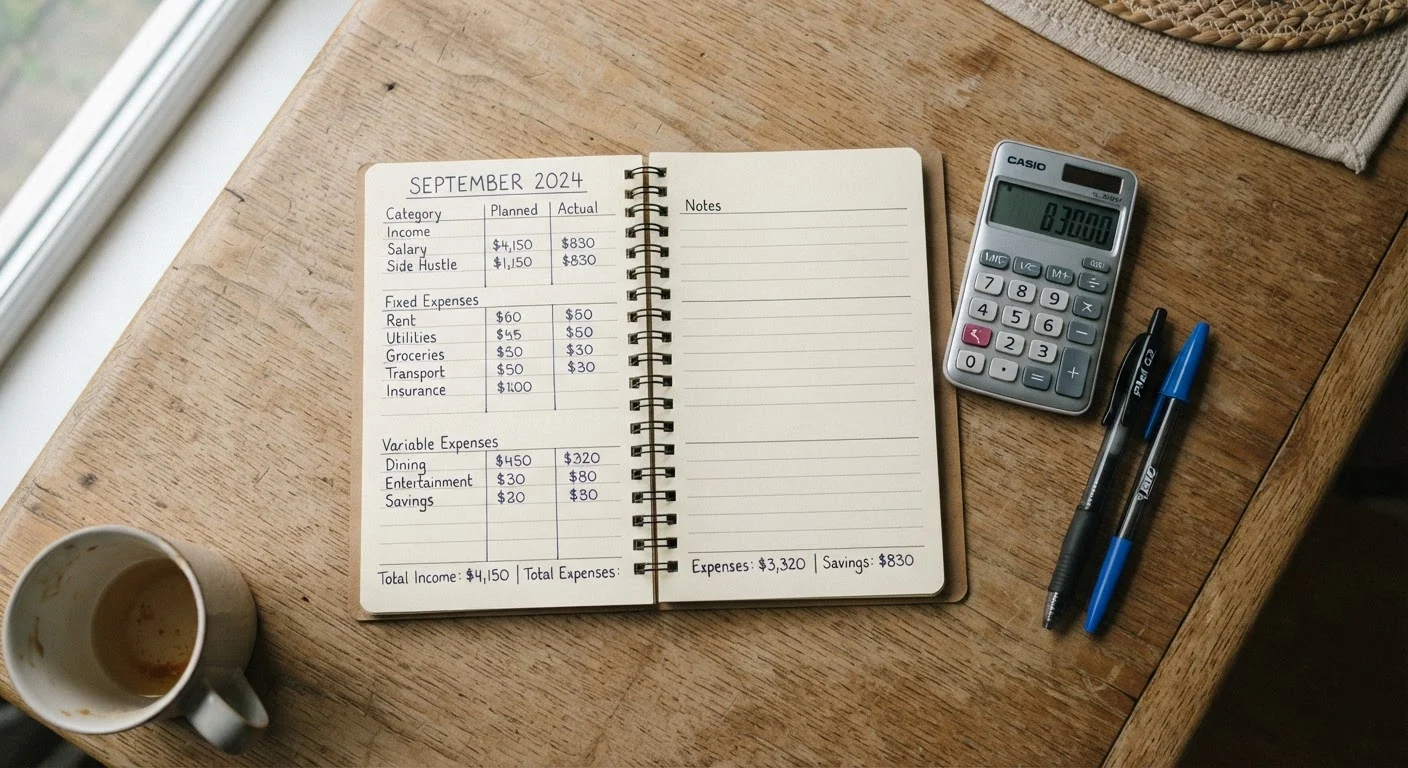 SEPTEMBER 2024
Category Planned Actual
Income
Salary $4,150 $830
Side Hustle $1,150 $830
Fixed Expenses
Rent $60 $50
Utilities $45 $50
Groceries $50 $30
Transport $50 $30
Insurance
Variable Expenses
Dining $450 $320
Entertainment $30 $80
Savings $20 $30
Total Income: $4,150 | Total Expenses:
Notes
Expenses: $3,320 | Savings: $830
CASIO
7 8 9
4 5 6 −
2 3
0 · = +
BIC